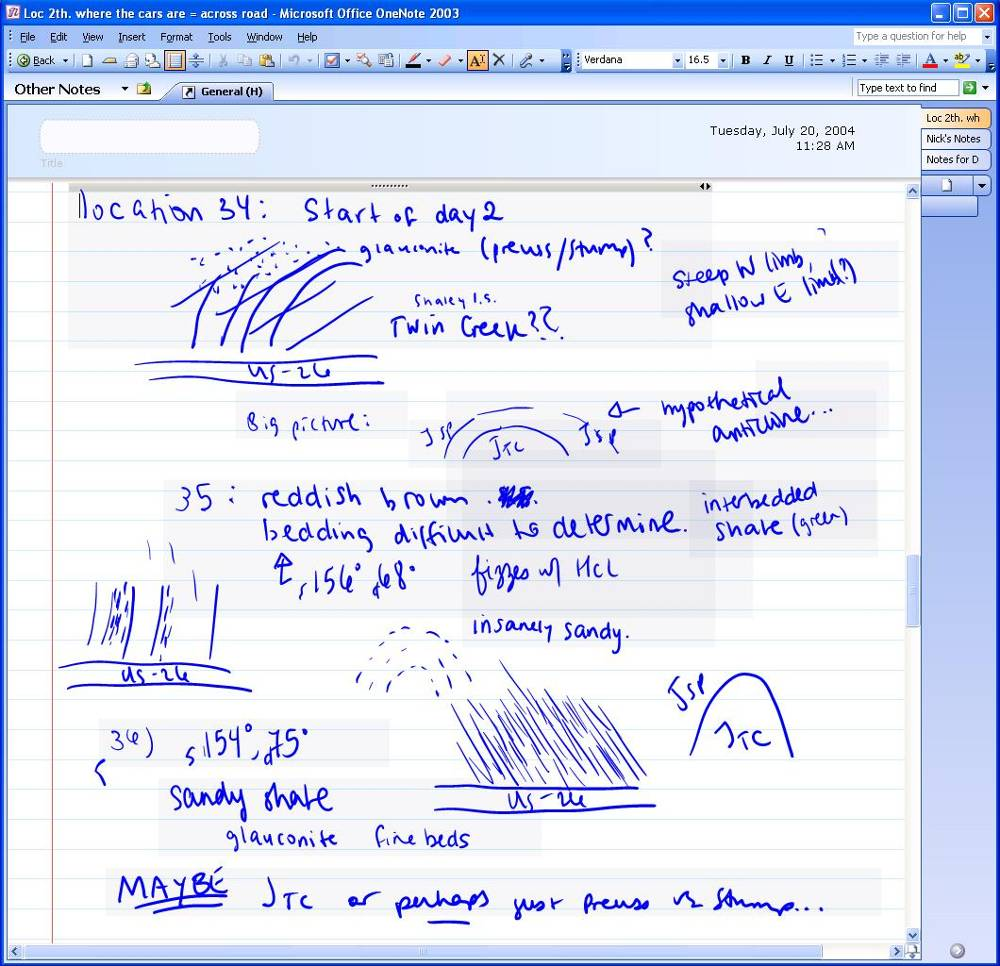 Loc 2th. where the cars are = across road - Microsoft Office OneNote 2003
File Edit View Insert Format Tools Window Help
Type a question for help
Back
Verdana 16.5 B I U
Other Notes
General (H)
Type text to find
Title
Tuesday, July 20, 2004
11:28 AM
Loc 2th. wh
Nick's Notes
Notes for D
location 34: Start of day 2
glauconite (preuss/stump)?
Steep W limb,
shallow E limb(?)
Shaley l.s.
Twin Creek??
US-26
Big picture:
Jsp JTC Jsp
hypothetical
anticline...
35: reddish brown
bedding difficult to determine.
interbedded
shale (green)
s, 156° d, 68° fizzes w/ HCl
insanely sandy.
US-26
Jsp
JTC
36) s, 154° d, 75°
US-26
sandy shale
glauconite fine beds
MAYBE JTC or perhaps just Preuss & Stump...